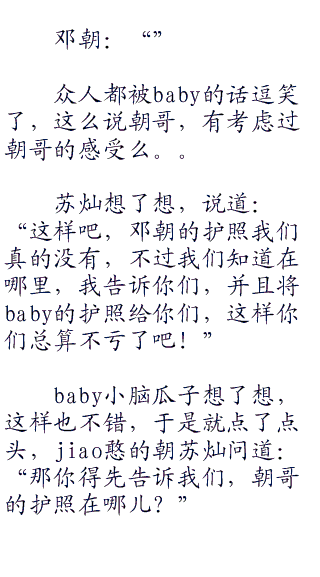 邓朝：“”
众人都被baby的话逗笑
了，这么说朝哥，有考虑过
朝哥的感受么。。
苏灿想了想，说道：
“这样吧，邓朝的护照我们
真的没有，不过我们知道在
哪里，我告诉你们，并且将
baby的护照给你们，这样你
们总算不亏了吧！”
baby小脑瓜子想了想，
这样也不错，于是就点了点
头，jiao憨的朝苏灿问道：
“那你得先告诉我们，朝哥
的护照在哪儿？”